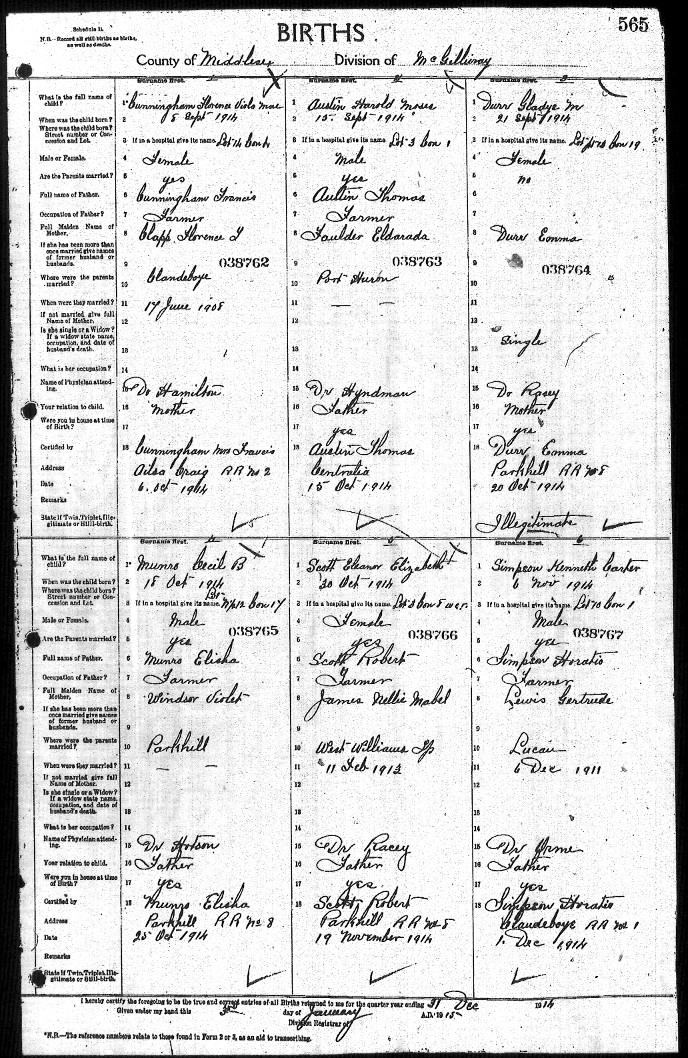 Schedule B.
N.B.—Record all still births as births, as well as deaths.
BIRTHS
565
County of Middlesex Division of McGillivray
Surname first. 1
Surname first. 2
Surname first. 3
What is the full name of child?
1 Cunningham Florence Viola Mae
1 Austin Harold Moses
1 Durr Gladys M
When was the child born?
2 8 Sept 1914
2 15 Sept 1914
2 21 Sept 1914
Where was the child born? Street number or Concession and Lot.
3 If in a hospital give its name. Lot 14 Con 4
3 If in a hospital give its name. Lot 3 Con 1
3 If in a hospital give its name. Lot pt 13 Con 19
Male or Female.
4 Female
4 Male
4 Female
Are the Parents married?
5 yes
5 yes
5 no
Full name of Father.
6 Cunningham Francis
6 Austin Thomas
6
Occupation of Father?
7 Farmer
7 Farmer
7
Full Maiden Name of Mother.
8 Clapp Florence J
8 Faulder Eldarada
8 Durr Emma
If she has been more than once married give names of former husband or husbands.
9 038762
9 038763
9 038764
Where were the parents married?
10 Clandeboye
10 Port Huron
10
When were they married?
11 17 June 1908
11 — —
11
If not married give full Name of Mother.
12
12
12
Is she single or a Widow? If a widow state name, occupation, and date of husband's death.
13
13
13 Single
What is her occupation?
14
14
14
Name of Physician attending.
15 Dr Hamilton
15 Dr Hyndman
15 Dr Rasey
Your relation to child.
16 Mother
16 Father
16 Mother
Were you in house at time of Birth?
17
17 yes
17 yes
Certified by
18 Cunningham Mrs Francis
18 Austin Thomas
18 Durr Emma
Address
Ailsa Craig RR No 2
Centralia
Parkhill RR No 8
Date
6. Oct 1914
15 Oct 1914
20 Oct 1914
Remarks
State if Twin, Triplet, Illegitimate or Still-birth.
Illegitimate
Surname first. 4
Surname first. 5
Surname first. 6
What is the full name of child?
1 Munro Cecil B
1 Scott Eleanor Elizabeth
1 Simpson Kenneth Carter
When was the child born?
2 18 Oct 1914
2 30 Oct 1914
2 6 Nov 1914
Where was the child born? Street number or Concession and Lot.
3 If in a hospital give its name. Lot N½12 Con 17
3 If in a hospital give its name. Lot 3 Con 8
3 If in a hospital give its name. Lot 10 Con 1
Male or Female.
4 Male
4 Female
4 Male
038765
038766
038767
Are the Parents married?
5 yes
5 yes
5 yes
Full name of Father.
6 Munro Elisha
6 Scott Robert
6 Simpson Horatio
Occupation of Father?
7 Farmer
7 Farmer
7 Farmer
Full Maiden Name of Mother,
8 Windsor Violet
8 James Nellie Mabel
8 Lewis Gertrude
If she has been more than once married give names of former husband or husbands.
9
9
9
Where were the parents married?
10 Parkhill
10 West Williams Tp
10 Lucan
When were they married?
11 — —
11 11 Feb 1913
11 6 Dec 1911
If not married give full Name of Mother.
12
12
12
Is she single or a Widow? If a widow state name, occupation, and date of husband's death.
13
13
13
What is her occupation?
14
14
14
Name of Physician attending.
15 Dr Hotson
15 Dr Racey
15 Dr Orme
Your relation to child.
16 Father
16 Father
16 Father
Were you in house at time of Birth?
17 yes
17 yes
17 yes
Certified by
18 Munro Elisha
18 Scott Robert
18 Simpson Horatio
Address
Parkhill RR No 8
Parkhill RR No 8
Clandeboye RR No 1
Date
25 Oct 1914
19 November 1914
1. Dec 1914
Remarks
State if Twin, Triplet, Illegitimate or Still-birth.
I hereby certify the foregoing to be the true and correct entries of all Births returned to me for the quarter year ending 31 Dec 1914
Given under my hand this 3rd day of January A.D. 1915
Division Registrar of
*N.B.—The reference numbers relate to those found in Form 2 or 3, as an aid to transcribing.